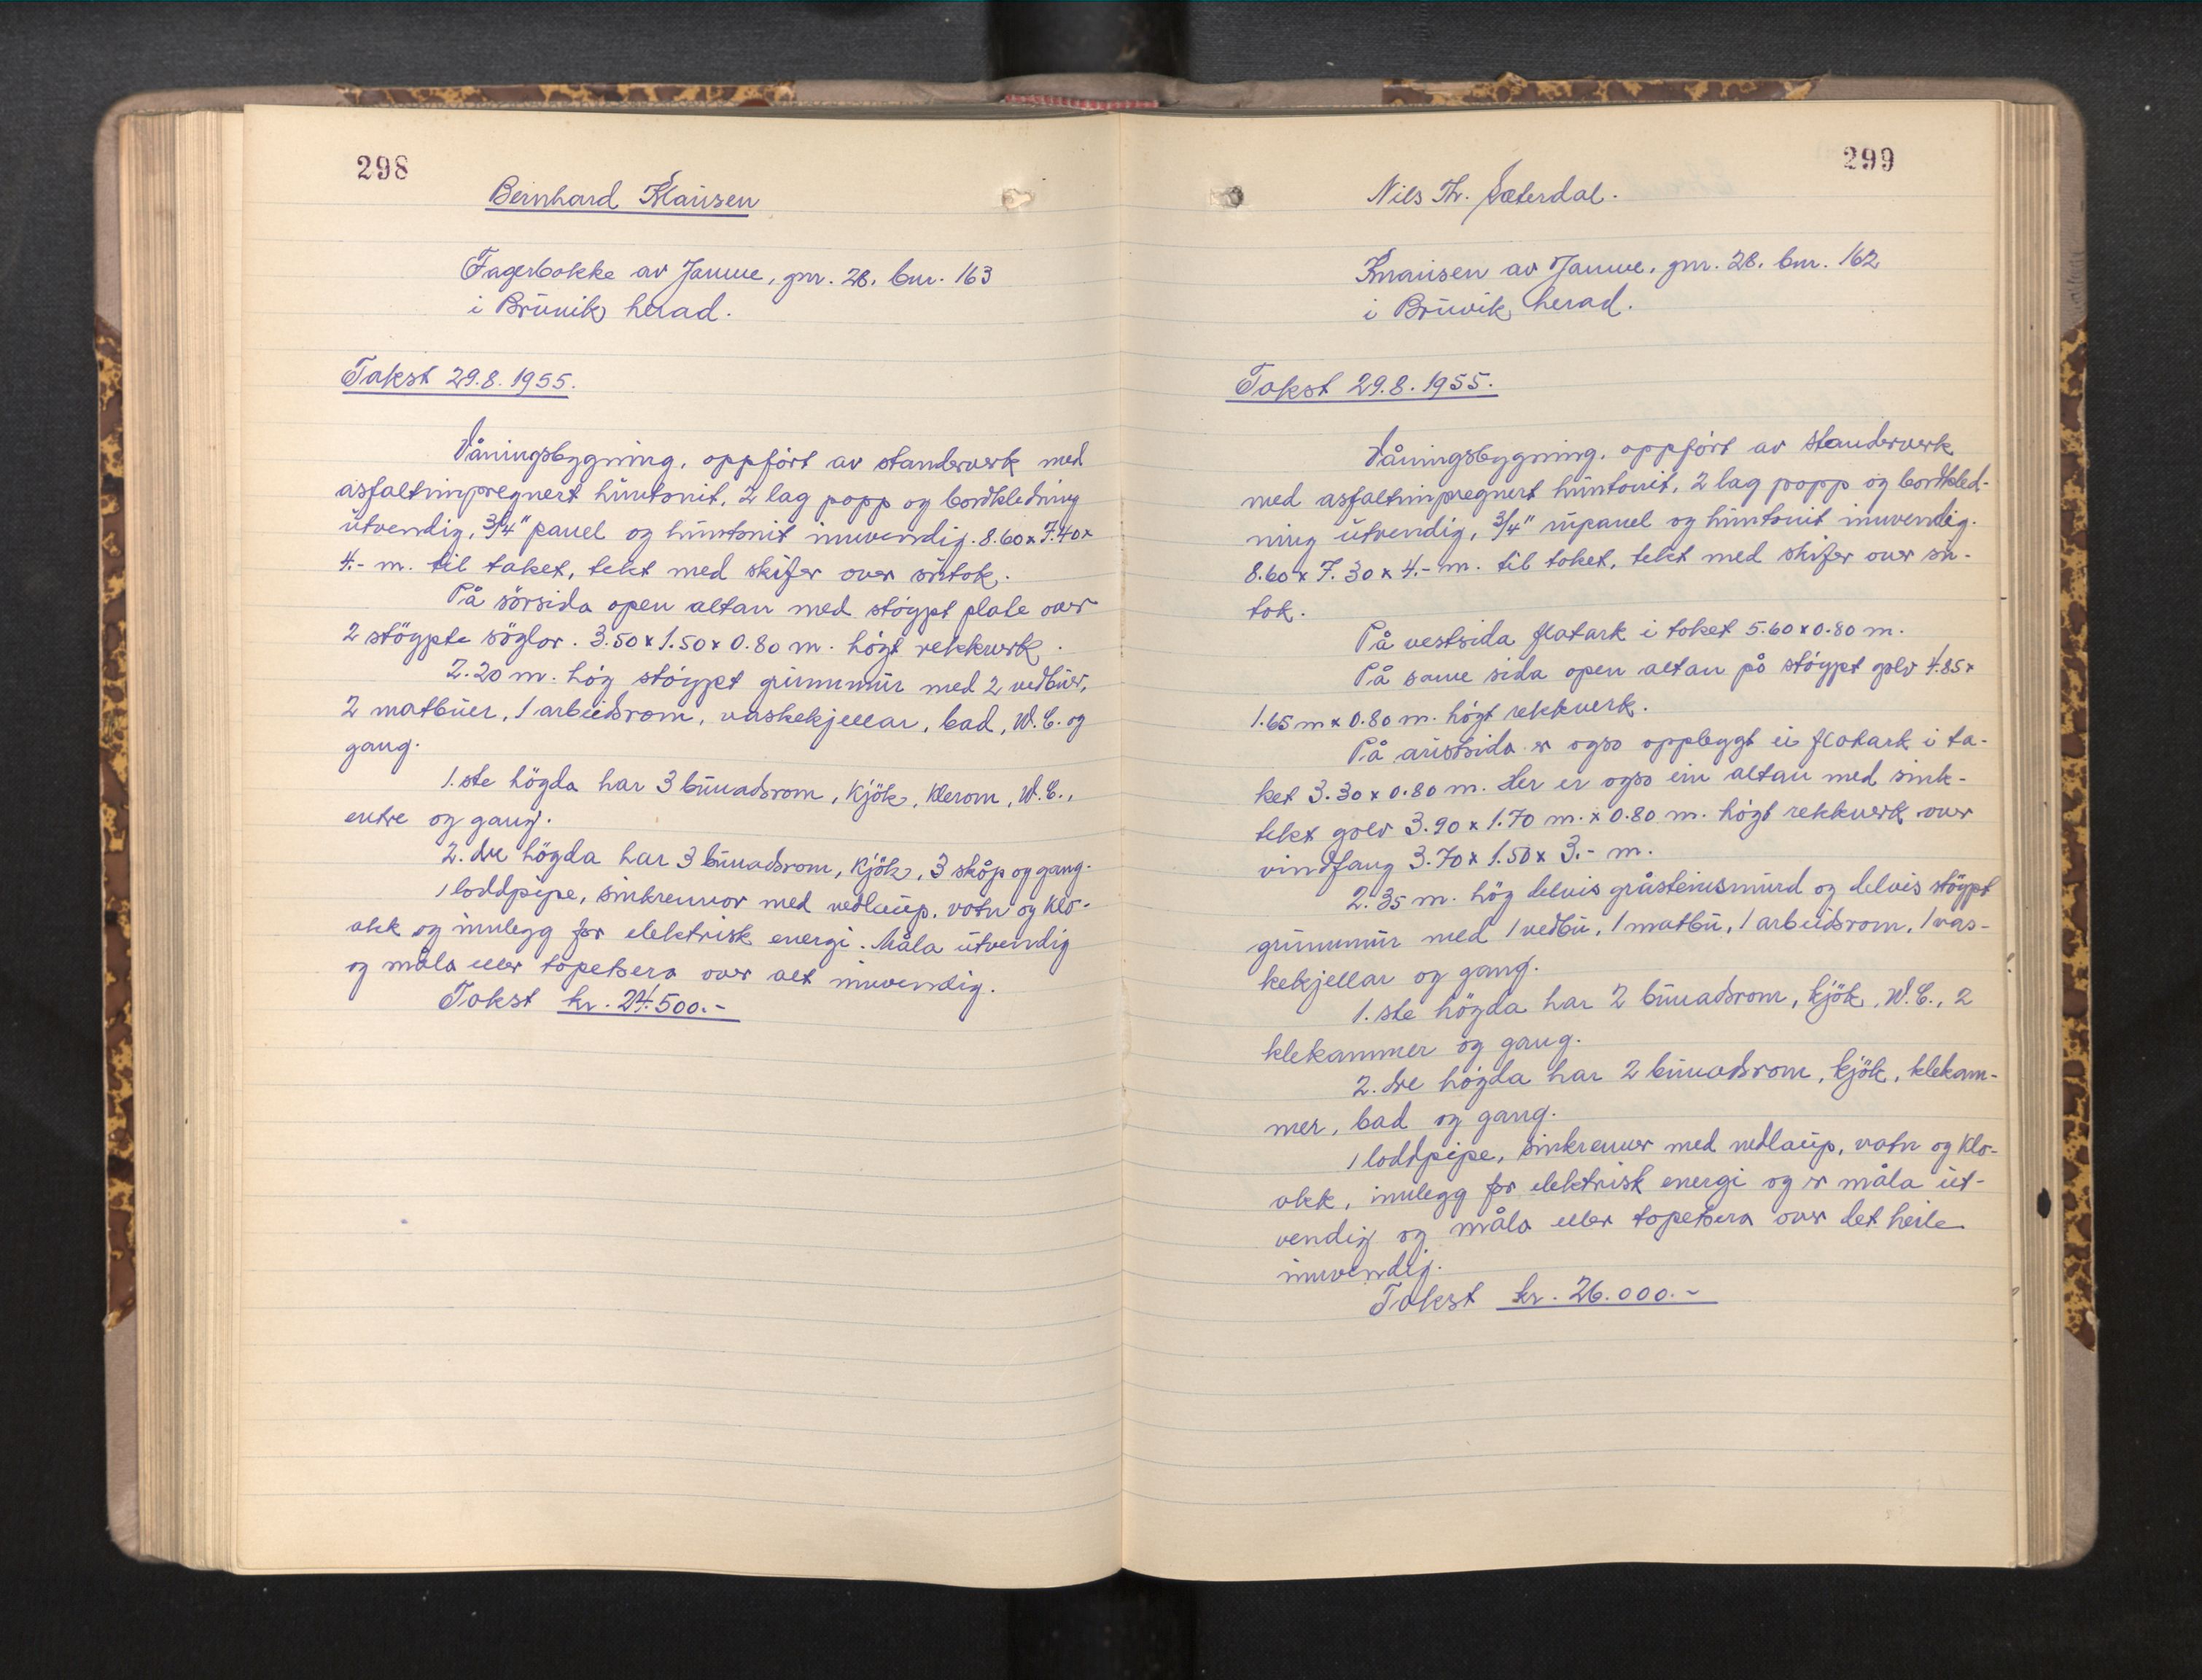 298
Bernhard Klausen
Fagerbakke av Jamne, gnr. 28, bnr. 163
i Bruvik herad.
Takst 29.8.1955.
Våningsbygning, oppført av standerverk med
asfaltimpregnert huntonit, 2 lag papp og bordkledning
utvendig, 3/4" panel og huntonit innvendig. 8.60 x 7.40 x
4.- m. til taket, tekt med skifer over sutak.
På sørsida open altan med støypt plate over
2 støypte søylor. 3.50 x 1.50 x 0.80 m. høgt rekkverk.
2.20 m. høg støypt grunnmur med 2 vedbuer,
2 matbuer, 1 arbeidsrom, vaskekjellar, bad, W.C. og
gang.
1.ste høgda har 3 buuadsrom, kjøk, klerom, W.C.,
entre og gang.
2.dre høgda har 3 buuadsrom, kjøk, 3 skåp og gang.
1 loddpipe, sinkrennor med nedlaup, vatn og klo-
akk og innlegg for elektrisk energi. Måla utvendig
og måla eller tapetsera over alt innvendig.
Takst kr. 24.500.-
299
Nils Th. Sæterdal.
Knausen av Jamne, gnr. 28, bnr. 162
i Bruvik herad.
Takst 29.8.1955.
Våningsbygning, oppført av standerverk
med asfaltimpregnert huntonit, 2 lag papp og bordkled-
ning utvendig, 3/4" rupanel og huntonit innvendig.
8.60 x 7.30 x 4.- m. til taket, tekt med skifer over su-
tak.
På vestsida flatark i taket 5.60 x 0.80 m.
På same sida open altan på støypt golv 4.85 x
1.65 m x 0.80 m. høgt rekkverk.
På austsida er også oppbygt ei flatark i ta-
ket 3.30 x 0.80 m. Her er også ein altan med sink-
tekt golv 3.90 x 1.70 m. x 0.80 m. høgt rekkverk over
vindfang 3.70 x 1.50 x 3.- m.
2.35 m. høg delvis gråsteinsmurd og delvis støypt
grunnmur med 1 vedbu, 1 matbu, 1 arbeidsrom, 1 vas-
kekjellar og gang.
1.ste høgda har 2 buuadsrom, kjøk, W.C., 2
klekammer og gang.
2.dre høgda har 2 buuadsrom, kjøk, klekam-
mer, bad og gang.
1 loddpipe, sinkrenner med nedlaup, vatn og klo-
akk, innlegg for elektrisk energi og er måla ut-
vendig og måla eller tapetsera over det heile
innvendig.
Takst kr. 26.000.-